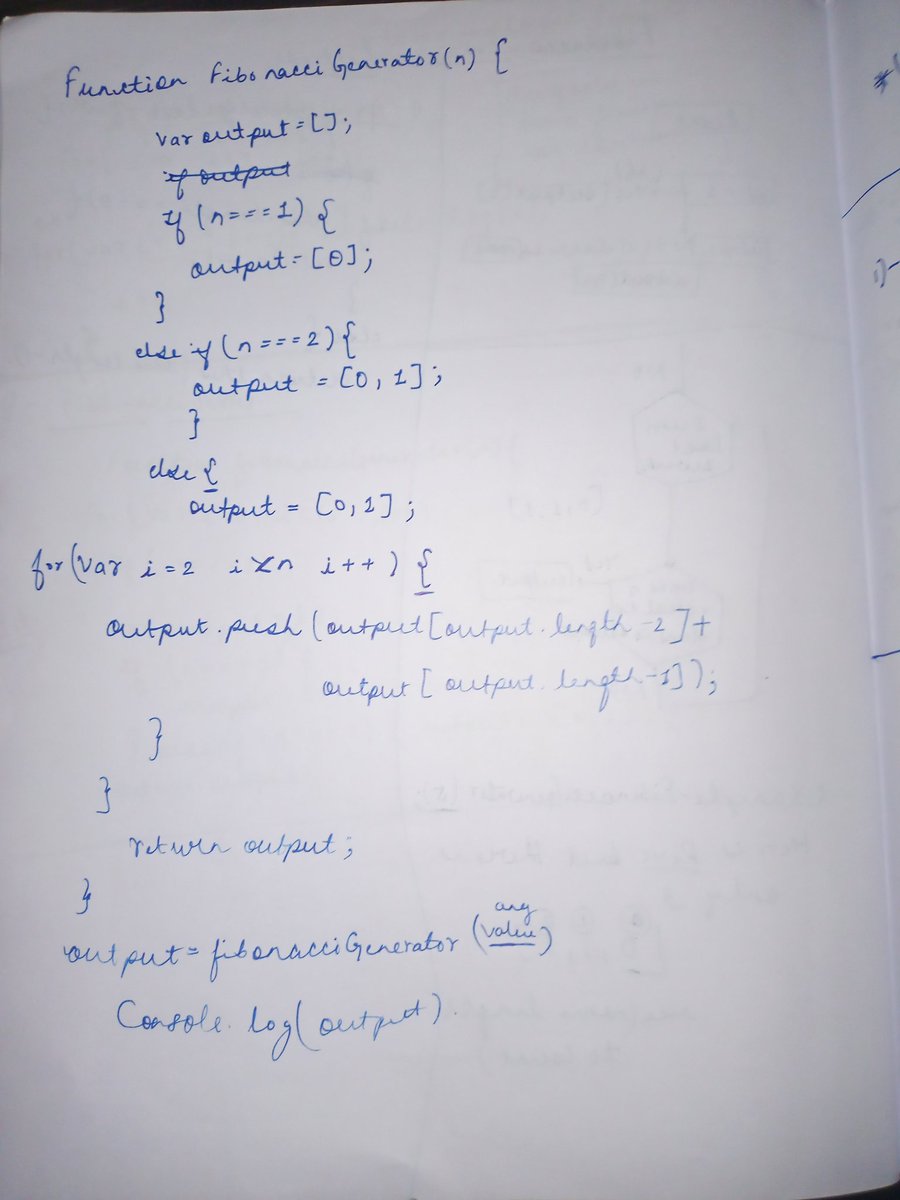 Function FibonacciGenerator(n) {
var output = [];
if output
if (n===1) {
output = [0];
}
else if (n===2) {
output = [0, 1];
}
else {
output = [0, 1];
for (var i = 2 i < n i++) {
output.push (output [output.length -2] +
output [output.length -1]);
}
}
return output;
}
any
output = fibonacciGenerator (value)
Console.log( output).
i)